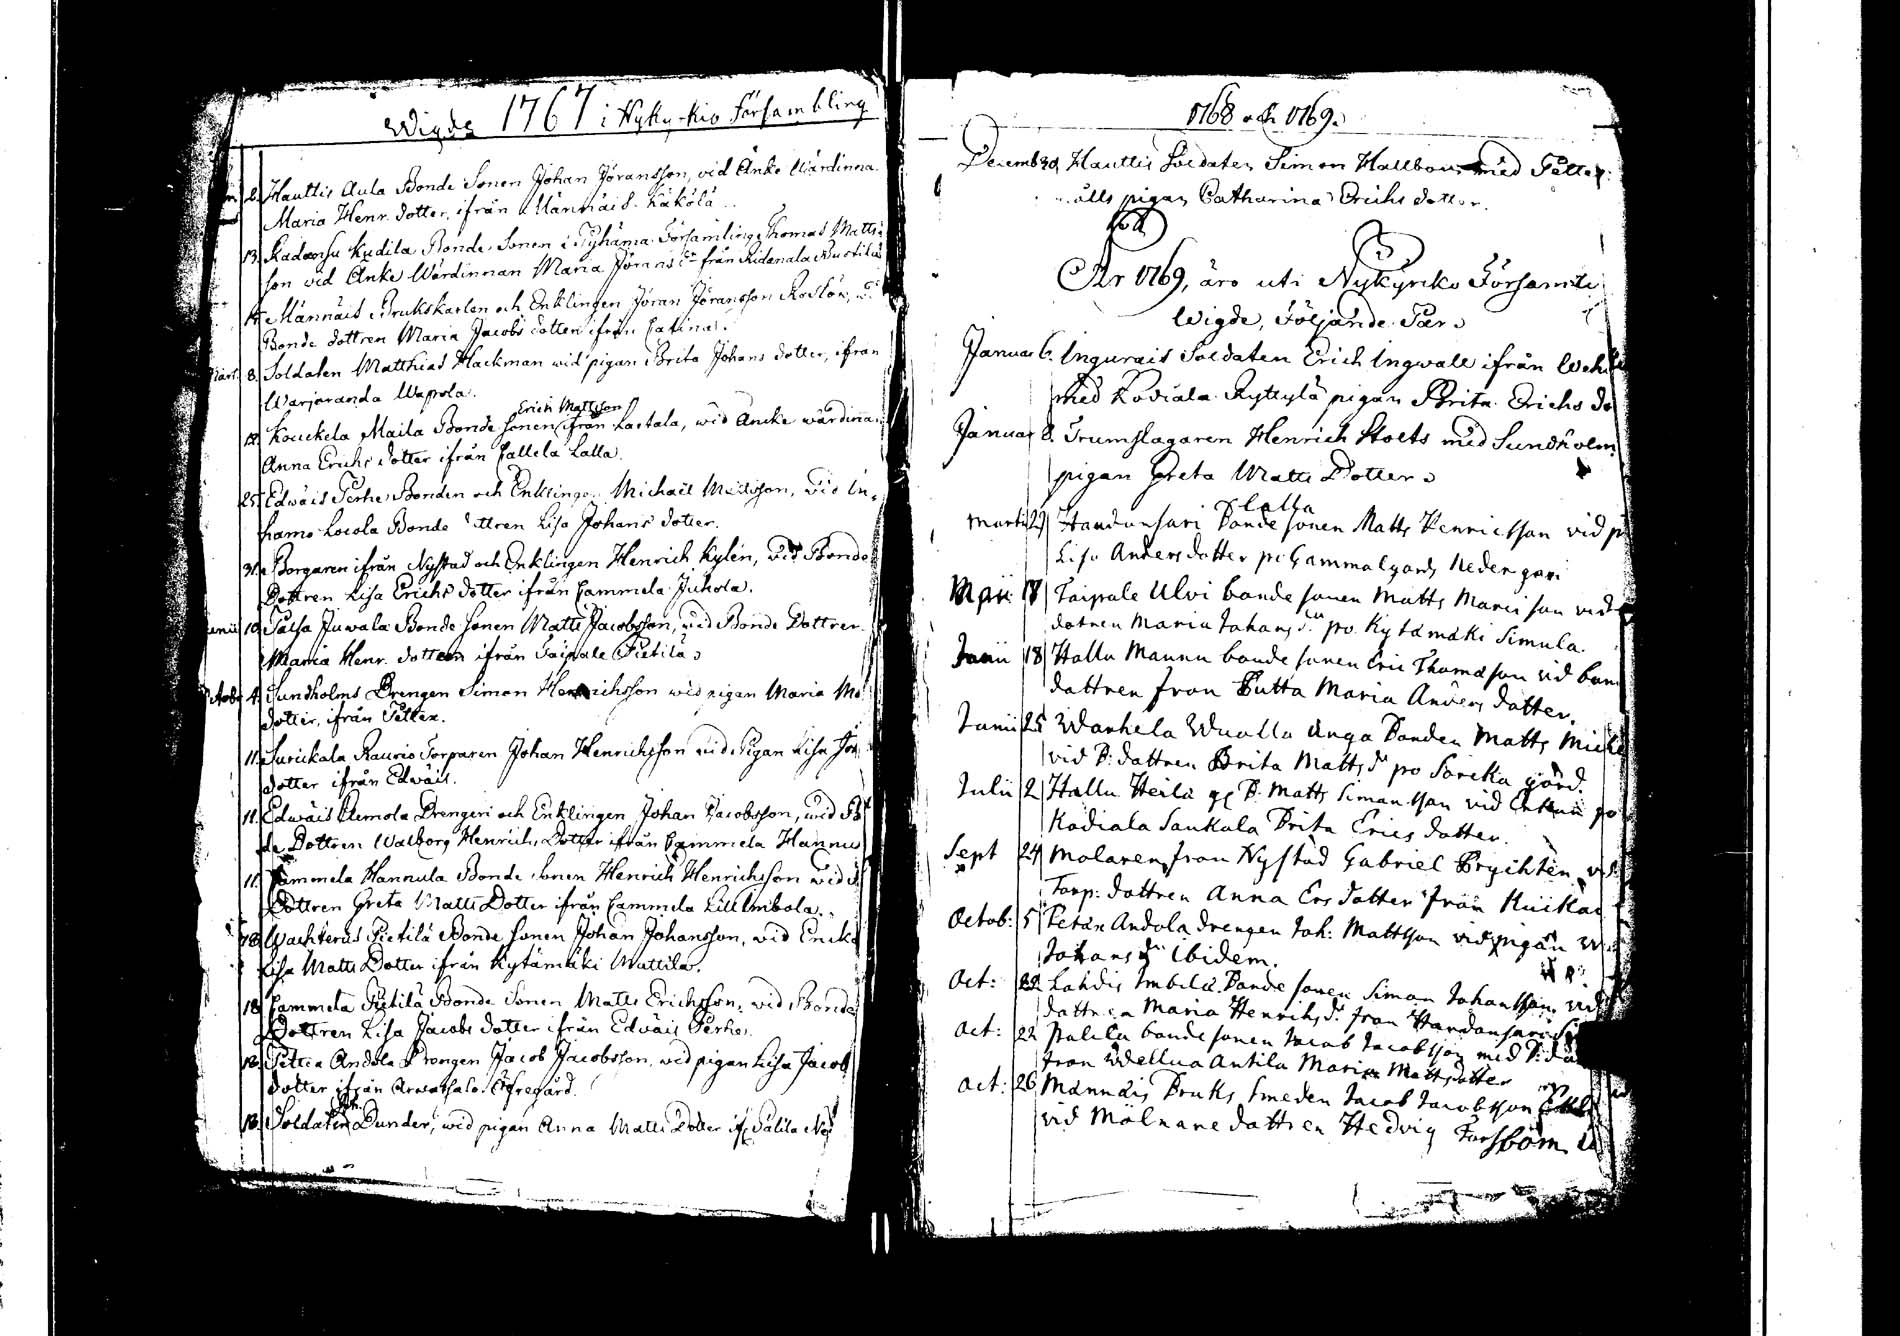 Wigde 1767 i Nyky-kio Försambling
2. Hauttis Aula Bonde Sonen Johan Jöransson, vid Änke Wärdinna
Maria Henr. dotter, ifrån Männäis Käkölä
13. Kadansu Kudila Bonde Sonen i Pyhäma Församling Thomas Matts
son vid Änke Wärdinnan Maria Jörans dr från Ridanala Rustila
Männäis Brukskarlen och Enklingen Jöran Jöransson
Bonde dottren Maria Jacobs dotter ifrån
8. Soldaten Matthias Hackman wid pigan Brita Johans dotter, ifrån
Warjaranda Wapola.
Erich Mattsson
12. Kouckela Maila Bonde sonen ifrån Laitala, wid Ancke wärdinna
Anna Erichs dotter ifrån Callela Lalla.
25. Edwäis Perhe Bonden och Enklingen Michaël Mattsson, vid In-
hamo Locola Bonde dottren Lisa Johans dotter.
31. Borgaren ifrån Nystad och Enklingen Henrich Kylén, vid Bonde
Dottren Lisa Erichs dotter ifrån Cammela Juhola.
10. Palsa Juwala Bonde Sonen Matts Jacobsson, wid Bonde Dottren
Maria Henr. dotter ifrån Taipale Pietilä
4. Sundholms Drengen Simon Henrichsson wid pigan Maria Ma
dotter, ifrån Petter.
11. Surickala Raurio Torparen Johan Henrichsson vid Pigan Lisa Jo
dotter ifrån Edwäis.
11. Edwäis Aemola Drengen och Enklingen Johan Jacobsson, wid Bo
de Dottren Walborg Henrichs Dotter ifrån Cammela Hannu
11. Cammela Hannula Bonde Sonen Henrich Henrichsson wid
Dottren Greta Matts Dotter ifrån Cammela Lill Imbola.
18. Wachterus Pietilä Bonde Sonen Johan Johansson, vid Encke
Lisa Matts Dotter ifrån Kytämäki Mattila.
18. Cammela Pietilä Bonde Sonen Matts Erichsson, vid Bonde
Dottren Lisa Jacobs dotter ifrån Edwäis Perhe.
18. Pettea Andola Drengen Jacob Jacobsson, wid pigan Lisa Jacob
dotter ifrån Arwassalo Öfregård.
18. Soldaten Dunder, wid pigan Anna Matts Dotter if. Palila
1768 och 1769.
Decemb 30. Hauttis Soldaten Simon Hallbom med Petter
pigan Catharina Erichs dotter.
År 1769, äro uti Nykyrko Församli
Wigde, Följande Par
Januar 6. Ingurais Soldaten Erich Ingwall ifrån
med Kodiala Ryttylä pigan Brita Erichs do
Januar 8. Trumslagaren Henrich Stolts med Sundholm
pigan Greta Matts Dotter
Lalla
Martii 29 Handonsari Bonde sonen Matts Henricsson vid pi
Lisa Anders dotter på Gammalgards Nedergård
Maii 17 Taipale Ulvi bonde sonen Matts Marcisson vid
dotren Maria Johans dr på Kytämäki Simula.
Junii 18 Hallu Mannu bonde sonen Eric Thomasson vid bon
dottren från Butta Maria Anders dotter.
Junii 25 Warhela Wualla unga Bonden Matts Miche
vid B: dottren Brita Matts dr på Soreka gård.
Julii 2 Hallu Heilä B. Matts Simonsson vid Enkan på
Kodiala Saukola Brita Erics dotter.
Sept 24 Molaren från Nystad Gabriel Brychtén vid
Torp: dottren Anna Ers dotter från
Octob: 5 Petäs Andola drengen Joh: Mattsson vid pigan
Johans dr ibidem.
Oct: 22 Lahdis Imbilä Bonde sonen Simon Johansson, vid
dottren Maria Henrichs dr från Handonsari
Oct: 22 Palila bonde sonen Jacob Jacobsson med B: do
från Wellua Antila Maria Mattsdotter
Oct: 26 Männäis Bruks Smeden Jacob Jacobsson
vid Mölnare dottren Hedvig Forsbom